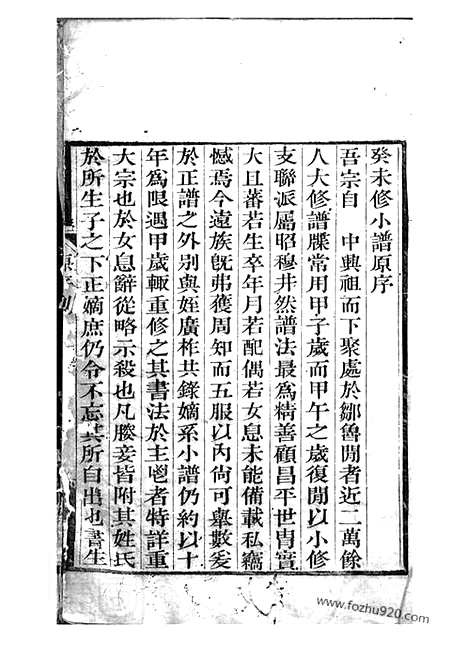 癸未修小譜原序
吾宗自 中興祖而下聚處於鄒魯閒者近二萬餘
人大修譜牒常用甲子歲而甲午之歲復閒以小修
支聯派屬昭穆井然譜法最為精善顧昌平世冑實
大且蕃若生卒年月若配偶若女息未能備載私竊
憾焉今遠族旣弗獲周知而五服以內尙可舉數爰
於正譜之外別與姪廣柞共錄嫡系小譜仍約以十
年為限遇甲歲輙重修之其書法於主鬯者特詳重
大宗也於女息辭從略示殺也凡媵妾皆附其姓氏
於所生子之下正嫡庶仍令不忘其所自出也書生
www.fozhu920.com